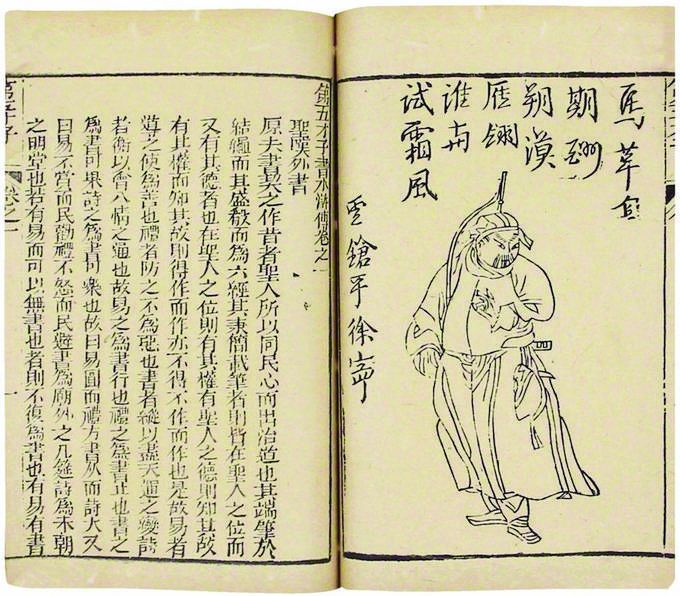 馬萃宜
朔漠
雁翎
试霜風
徐寧
第五才子書水滸傳卷之一
聖嘆外書
原夫書契之作昔者聖人所以同民心而出治道也其端肇於
結繩而其盛殽而為六經其秉簡載筆者則皆在聖人之位而
又有其德者也在聖人之位則有其權有聖人之德則知其故
有其權而知其故則得作而作亦不得不作而作也是故易者
導之使為善也禮者防之不為惡也書者縱以盡天運之變詩
者衡以會人情之通也故易之為書行也禮之為書止也書之
為書可畏詩之為書可樂也故曰易圓而禮方書久而詩大又
曰易不賞而民勸禮不怒而民避書為廟外之几筵詩為未朝
之明堂也若有易而可以無書也者則不復為書也有易有書
第五才子
卷之一
一